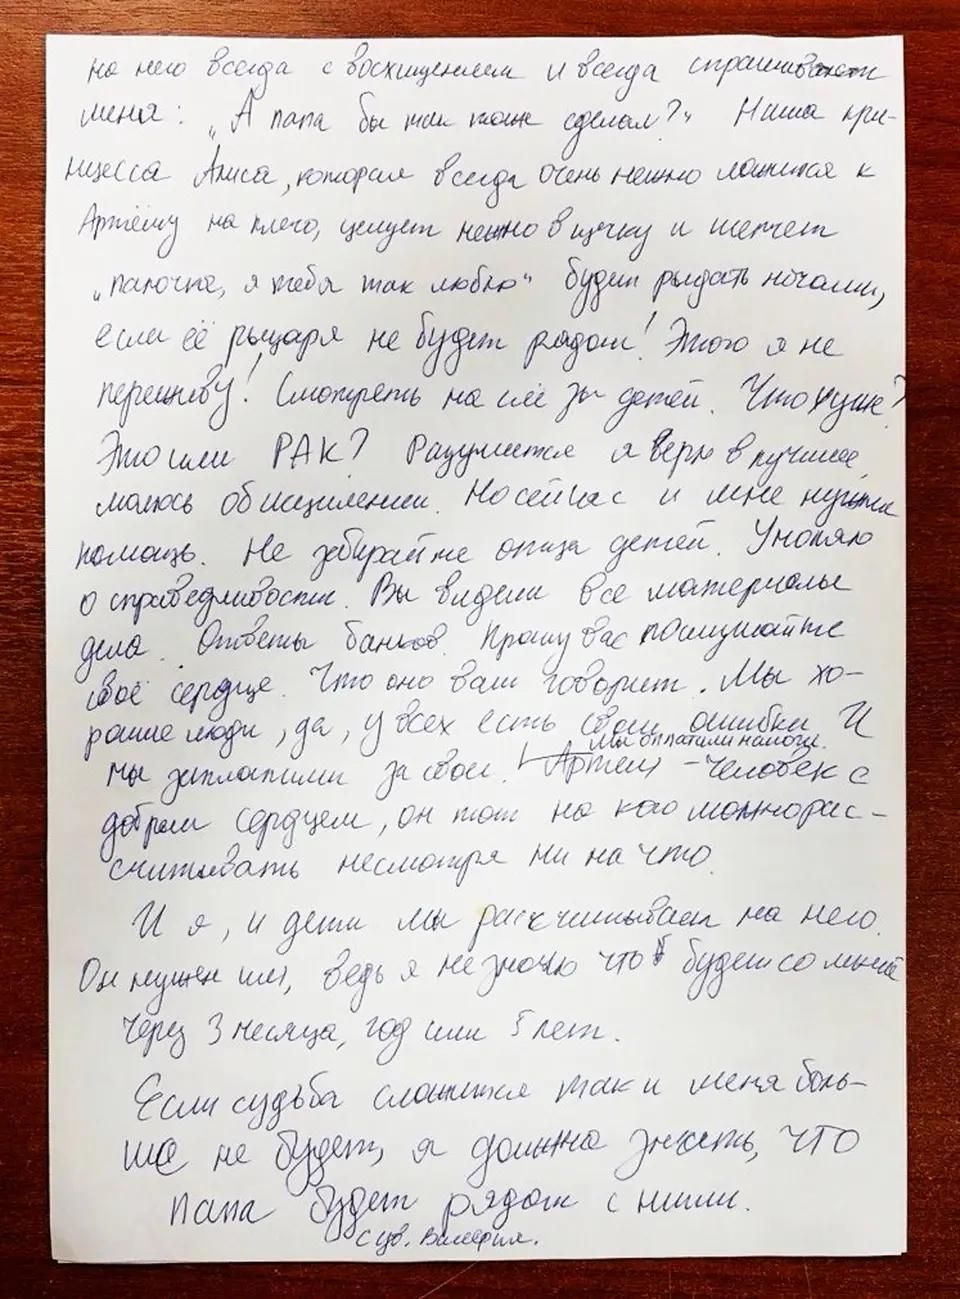 на него всегда с восхищением и всегда спрашивают
меня: „А папа бы так тоже сделал?" Наша прин-
нцесса Алиса, которая всегда очень нежно ложится к
Артёму на плечо, целует нежно в щечку и шепчет
„папочка, я тебя так люблю" будет рыдать ночами,
если её рыцаря не будет рядом! Этого я не
переживу! Смотреть на слёзы детей. Что хуже?
Это или РАК? Разумеется я верю в лучшее,
молюсь об исцелении. Но сейчас и мне нужна
помощь. Не забирайте отца детей. Умоляю
о справедливости. Вы видели все материалы
дела. Ответы банков. Прошу вас послушайте
своё сердце. Что оно вам говорит. Мы хо-
рошие люди, да, у всех есть свои ошибки. И
мы заплатили за свои. Мы оплатили налоги. Артём – человек с
добрым сердцем, он тот на кого можно рас-
считывать несмотря ни на что.
И я, и дети мы рассчитываем на него.
Он нужен им, ведь я не знаю что будет со мной
через 3 месяца, год или 5 лет.
Если судьба сложится так и меня боль-
ше не будет, я должна знать, что
папа будет рядом с ними.
С ув. Валерия.